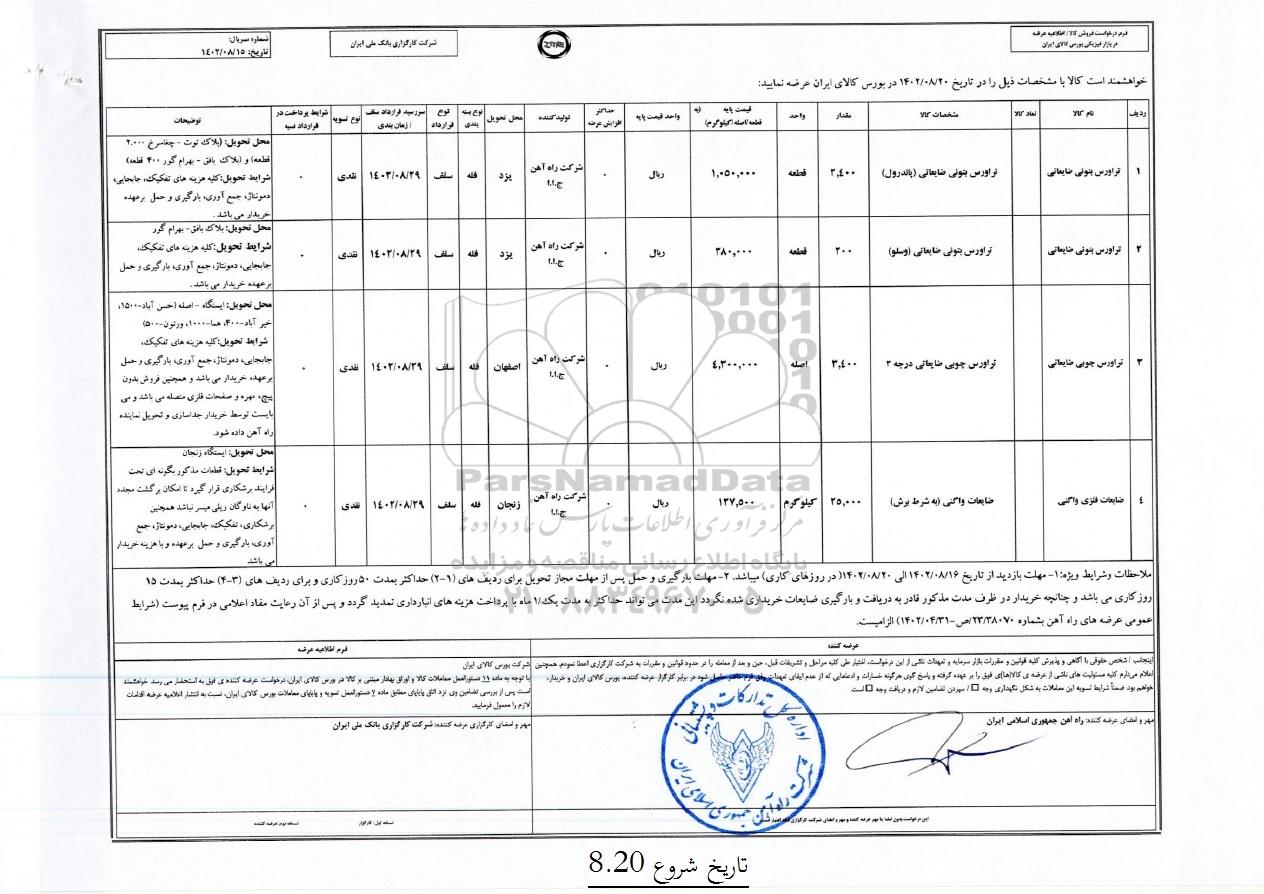 فرم درخواست فروش کالا / اطلاعیه عرضه
در بازار فیزیکی بورس کالای ایران
شرکت کارگزاری بانک ملی ایران
شماره سریال:
تاریخ: ۱۴۰۲/۰۸/۱۵
خواهشمند است کالا با مشخصات ذیل را در تاریخ ۱۴۰۲/۰۸/۲۰ در بورس کالای ایران عرضه نمایید:
ردیف نام کالا نماد کالا مشخصات کالا مقدار واحد قیمت پایه (به قطعه/اصله/کیلوگرم) واحد قیمت پایه حداکثر افزایش عرضه تولیدکننده محل تحویل نوع بسته بندی نوع قرارداد سررسید قرارداد سلف / زمان بندی نوع تسویه شرایط پرداخت در قرارداد نسیه توضیحات
۱ تراورس بتونی ضایعاتی تراورس بتونی ضایعاتی (پاندرول) ۲,۴۰۰ قطعه ۱,۰۵۰,۰۰۰ ریال ۰ شرکت راه آهن ج.ا.ا یزد فله سلف ۱۴۰۲/۰۸/۲۹ نقدی ۰
محل تحویل: (بلاک توت - چغاسرخ ۲.۰۰۰
قطعه) و (بلاک بافق - بهرام گور ۴۰۰ قطعه)
شرایط تحویل: کلیه هزینه های تفکیک، جابجایی،
دمونتاژ، جمع آوری، بارگیری و حمل برعهده
خریدار می باشد .
۲ تراورس بتونی ضایعاتی تراورس بتونی ضایعاتی (وسلو) ۲۰۰ قطعه ۳۸۰,۰۰۰ ریال ۰ شرکت راه آهن ج.ا.ا یزد فله سلف ۱۴۰۲/۰۸/۲۹ نقدی ۰
محل تحویل: بلاک بافق- بهرام گور
شرایط تحویل: کلیه هزینه های تفکیک،
جابجایی، دمونتاژ، جمع آوری، بارگیری و حمل
برعهده خریدار می باشد .
۳ تراورس چوبی ضایعاتی تراورس چوبی ضایعاتی درجه ۳ ۳,۴۰۰ اصله ۴,۳۰۰,۰۰۰ ریال ۰ شرکت راه آهن ج.ا.ا اصفهان فله سلف ۱۴۰۲/۰۸/۲۹ نقدی ۰
محل تحویل: ایستگاه - اصله (حسن آباد-۱۵۰۰،
خیر آباد-۴۰۰، هما-۱۰۰۰، ورتون-۵۰۰)
شرایط تحویل: کلیه هزینه های تفکیک،
جابجایی، دمونتاژ، جمع آوری، بارگیری و حمل
برعهده خریدار می باشد و همچنین فروش بدون
پیچ، مهره و صفحات فلزی متصله می باشد و می
بایست توسط خریدار جداسازی و تحویل نماینده
راه آهن داده شود.
۴ ضایعات فلزی واگنی ضایعات واگنی (به شرط برش) ۳۵,۰۰۰ کیلوگرم ۱۲۷,۵۰۰ ریال ۰ شرکت راه آهن ج.ا.ا زنجان فله سلف ۱۴۰۲/۰۸/۲۹ نقدی ۰
محل تحویل: ایستگاه زنجان
شرایط تحویل: قطعات مذکور بگونه ای تحت
فرایند برشکاری قرار گیرد تا امکان برگشت مجدد
آنها به ناوگان ریلی میسر نباشد همچنین
برشکاری، تفکیک، جابجایی، دمونتاژ، جمع
آوری، بارگیری و حمل برعهده و با هزینه خریدار
می باشد.
ParsNamadData
مرکز فرآوری اطلاعات پارس نماد داده ها
پایگاه اطلاع رسانی مناقصه و مزایده
۰۲۱-۸۸۳۴۹۶۷۰-۵
ملاحظات وشرایط ویژه:۱- مهلت بازدید از تاریخ ۱۴۰۲/۰۸/۱۶ الی ۱۴۰۲/۰۸/۲۰( در روزهای کاری) میباشد. ۲- مهلت بارگیری و حمل پس از مهلت مجاز تحویل برای ردیف های (۱-۲) حداکثر بمدت ۵۰ روزکاری و برای ردیف های (۳-۴) حداکثر بمدت ۱۵
روزکاری می باشد و چنانچه خریدار در ظرف مدت مذکور قادر به دریافت و بارگیری ضایعات خریداری شده نگردد این مدت می تواند حداکثر به مدت یک/۱ ماه با پرداخت هزینه های انبارداری تمدید گردد و پس از آن رعایت مفاد اعلامی در فرم پیوست (شرایط
عمومی عرضه های راه آهن بشماره ۲۳/۳۸۰۷۰/ص-۱۴۰۲/۰۴/۳۱) الزامیست.
عرضه کننده:
اینجانب / شخص حقوقی با آگاهی و پذیرش کلیه قوانین و مقررات بازار سرمایه و تعهدات ناشی از این درخواست، اختیار طی کلیه مراحل و تشریفات قبل، حین و بعد از معامله را در حدود قوانین و مقررات به شرکت کارگزاری اعطا نمودم. همچنین
اعلام می‌دارم کلیه مسئولیت های ناشی از عرضه ی کالا(ها)ی فوق را بر عهده گرفته و پاسخ گوی هرگونه خسارات و ادعاهایی که از عدم ایفای تعهدات وفق فرم حاضر حاصل شود در برابر کارگزار عرضه کننده، بورس کالای ایران و خریدار،
خواهم بود. ضمناً شرایط تسویه این معاملات به شکل نگهداری وجه □ / سپردن تضامین لازم و دریافت وجه □ است.
مهر و امضای عرضه کننده: راه آهن جمهوری اسلامی ایران
اداره کل تدارکات و پشتیبانی
شرکت راه آهن جمهوری اسلامی ایران
فرم اطلاعیه عرضه
شرکت بورس کالای ایران
با توجه به ماده ۱۱ دستورالعمل معاملات کالا و اوراق بهادار مبتنی بر کالا در بورس کالای ایران، درخواست عرضه کننده ی فوق به استحضار می رسد. خواهشمند
است پس از بررسی تضامین وی نزد اتاق پایاپای مطابق ماده ۷ دستورالعمل تسویه و پایاپای معاملات بورس کالای ایران، نسبت به انتشار اعلامیه عرضه اقدامات
لازم را معمول فرمایید.
مهر و امضای کارگزاری عرضه کننده: شرکت کارگزاری بانک ملی ایران
این درخواست بدون امضا یا مهر عرضه کننده و مهر و امضای شرکت کارگزاری فاقد اعتبار است.
نسخه اول: کارگزار
نسخه دوم: عرضه کننده
تاریخ شروع 8.20